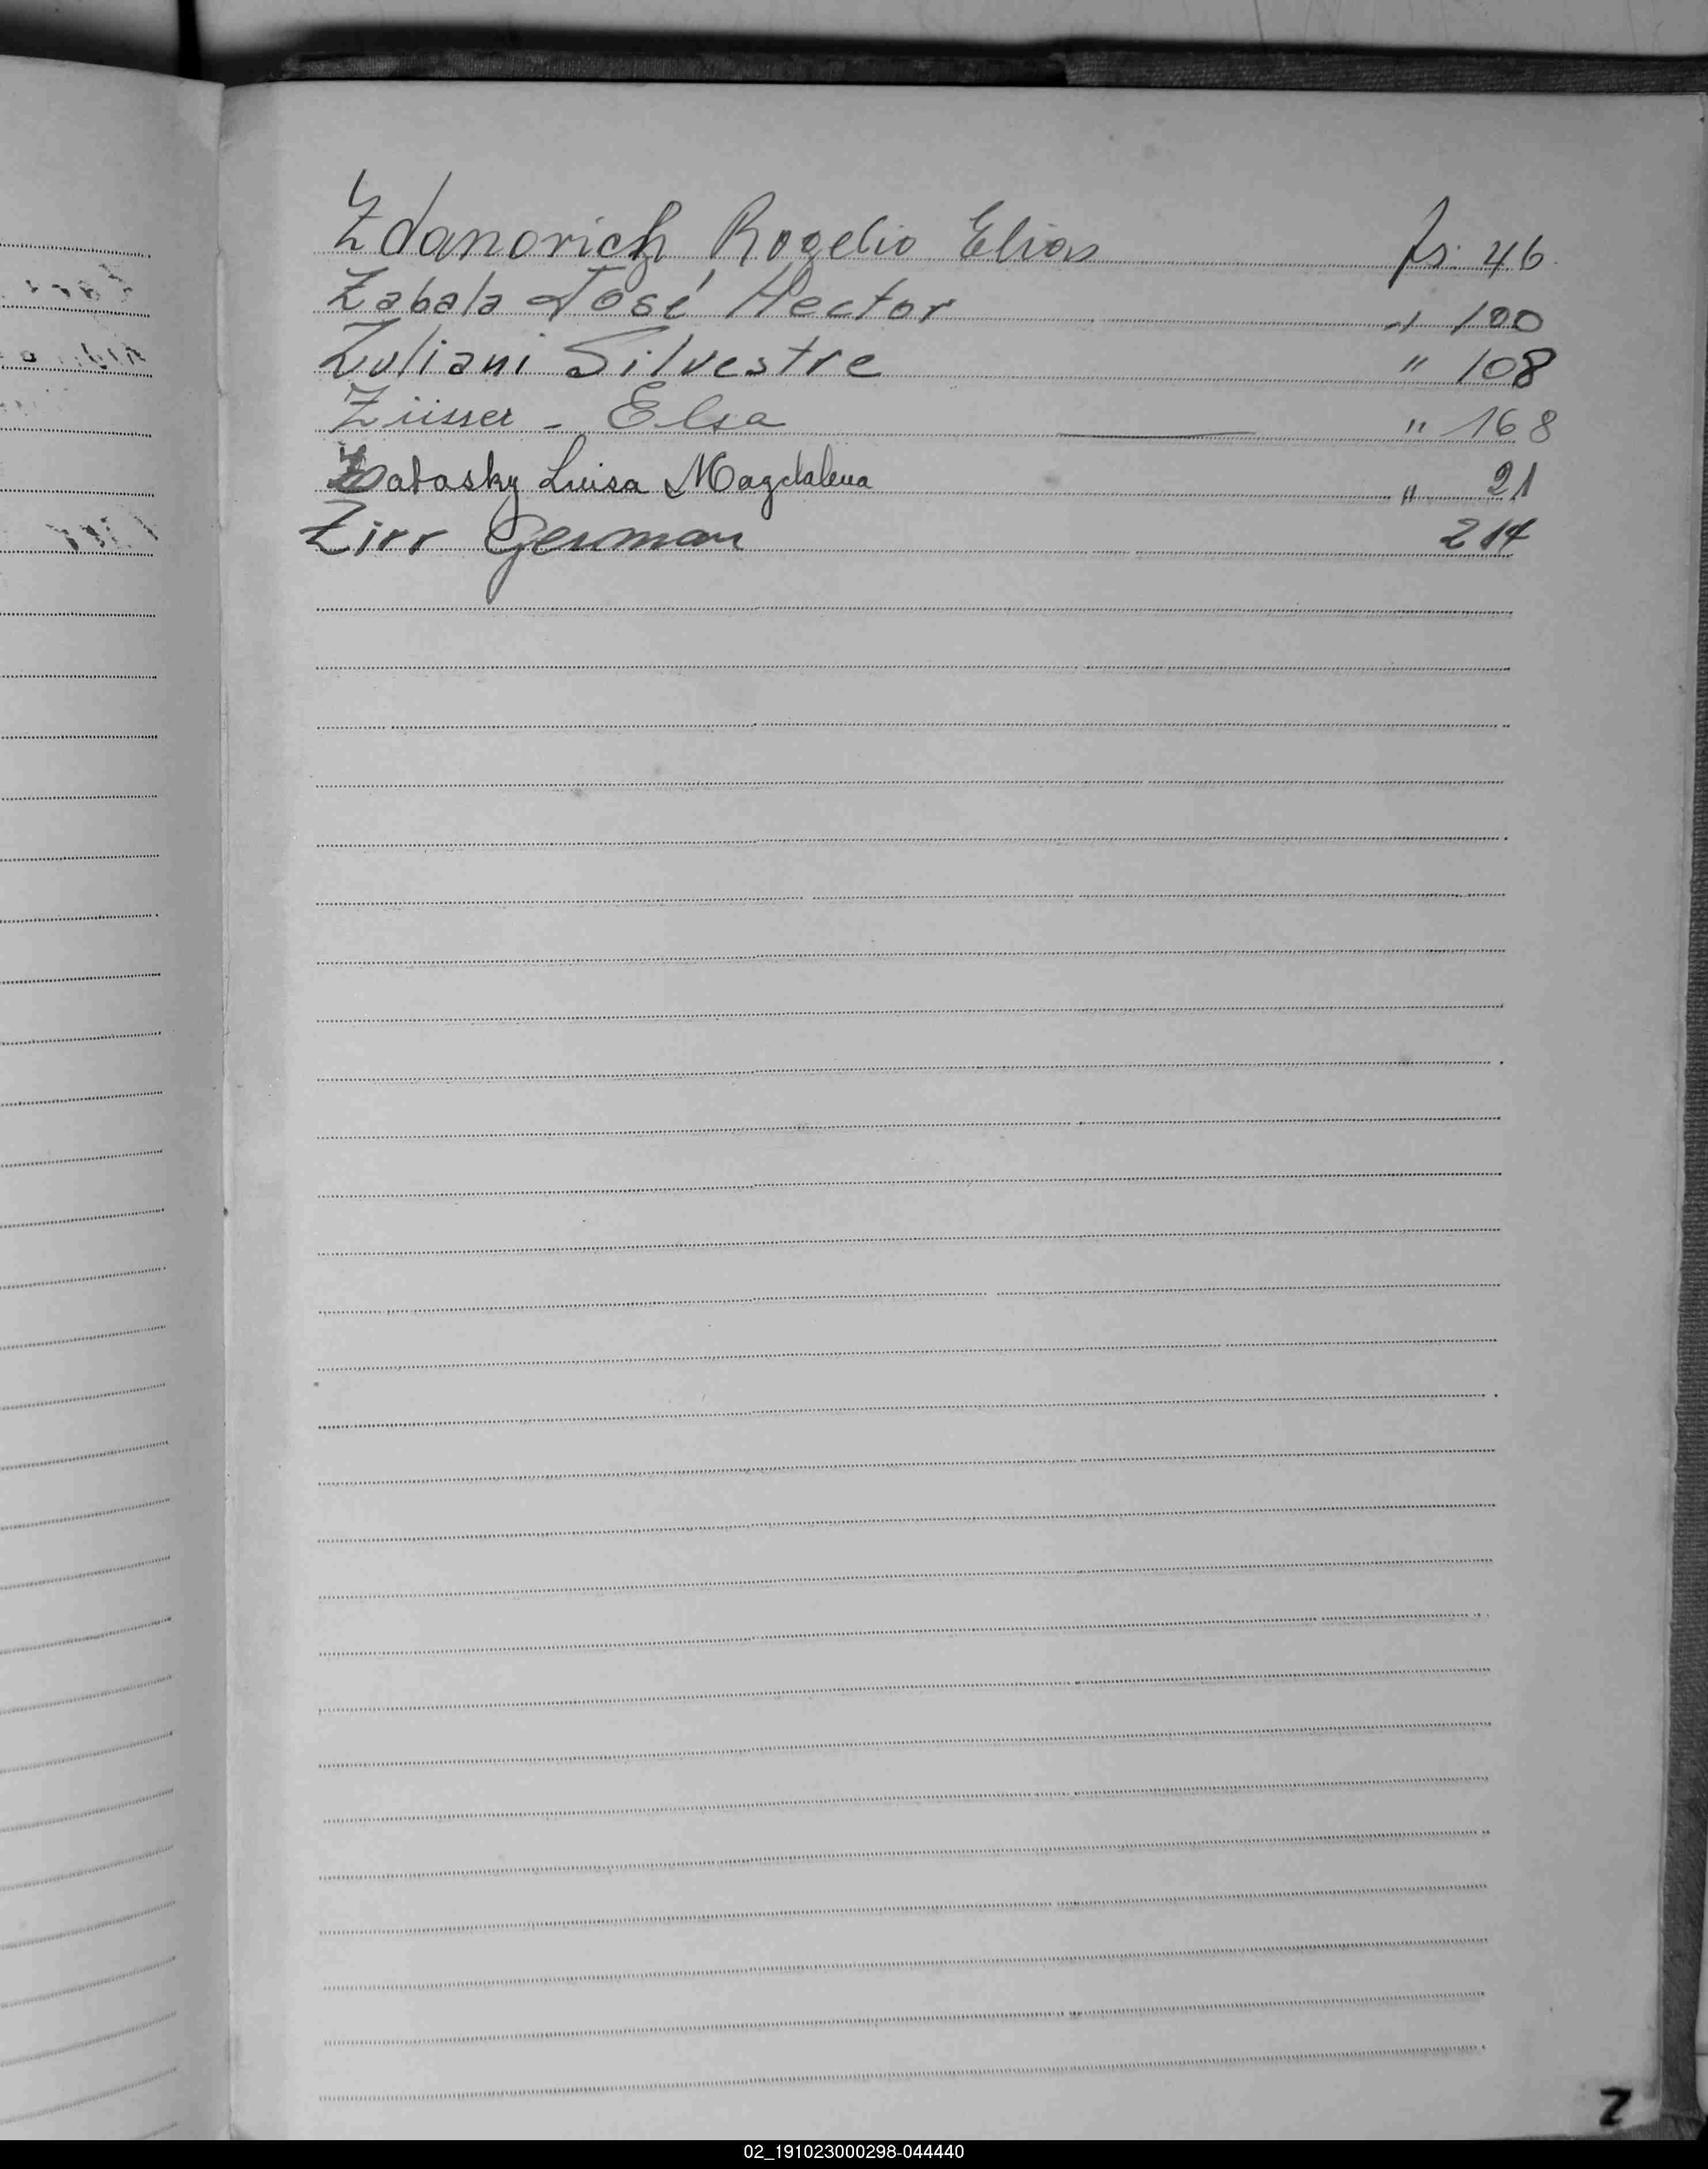 Zdanovich Rogelio Elias fs. 46
Zabala José Hector " 100
Zuliani Silvestre " 108
Züsser - Elsa " 168
Luisa Magdalena " 21
Zirr German 214
Z
02_191023000298-044440